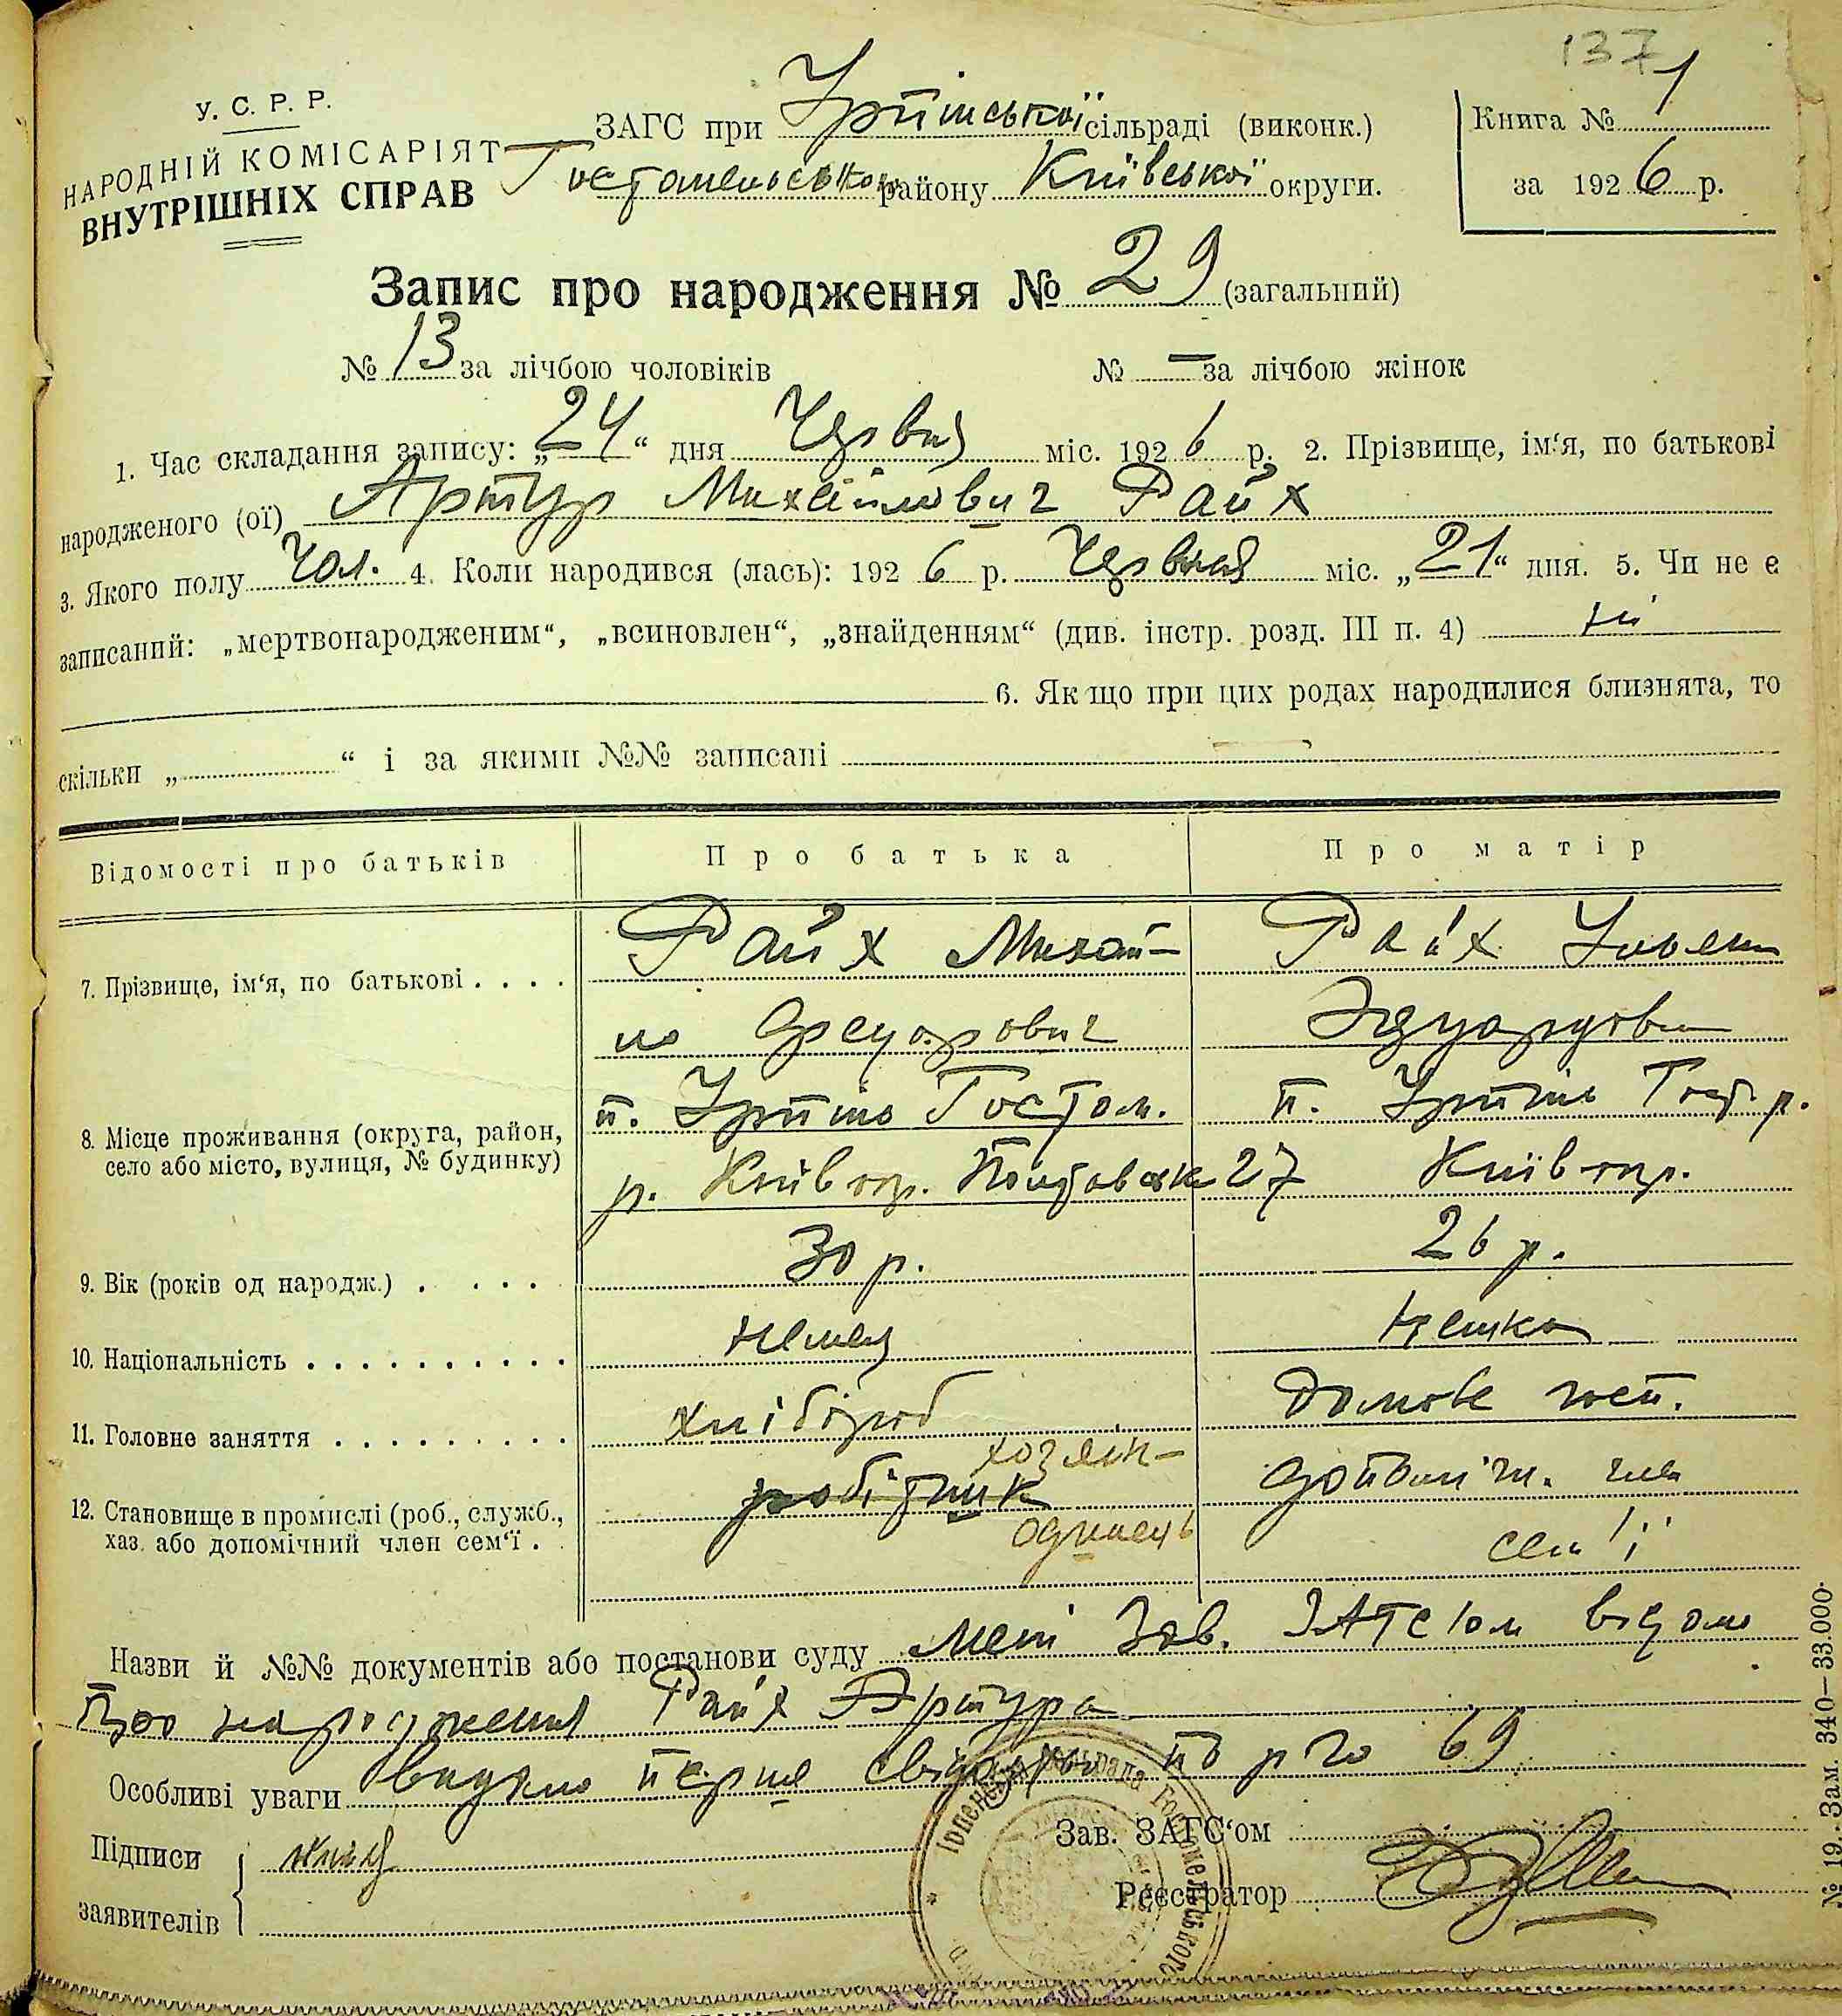 137
У. С. Р. Р.
НАРОДНІЙ КОМІСАРІЯТ
ВНУТРІШНІХ СПРАВ
ЗАГС при Ірпінської сільраді (виконк.)
Гостомельського району Київської округи.
Книга № 1
за 1926 р.
Запис про народження № 29 (загальний)
№ 13 за лічбою чоловіків № — за лічбою жінок
1. Час складання запису: „24“ дня Червня міс. 1926 р. 2. Прізвище, ім‘я, по батькові
народженого (ої) Артур Михайлович Райх
3. Якого полу Чол. 4. Коли народився (лась): 1926 р. Червня міс. „21“ дня. 5. Чи не є
записаний: „мертвонародженим“, „всиновлен“, „знайденням“ (див. інстр. розд. III п. 4) ні
6. Якщо при цих родах народилися близнята, то
скільки „ “ і за якими №№ записані —
Відомості про батьків Про батька Про матір
7. Прізвище, ім‘я, по батькові . . . . Райх Михай- Райх
ло Едуардови
8. Місце проживання (округа, район, село або місто, вулиця, № будинку) п. Ірпінь Гостом. п. Ірпінь Гост. р.
р. Київ окр. 27 Київ окр.
9. Вік (років од народж.) . . . . 30 р. 26 р.
10. Національність . . . . . . . . . . . немец немка
11. Головне заняття . . . . . . . . . хлібороб домове госп.
12. Становище в промислі (роб., служб., хаз. або допомічний член сем‘ї . . робітник хозяїн-
одинець допоміч. член
сем'ї
Назви й №№ документів або постанови суду мені Зав. ЗАГС'ом відомо
про народження Райх Артура
Особливі уваги видано перше по р 69
Підписи
заявителів
Зав. ЗАГС‘ом
Реєстратор
Ірпенська сільрада Гостомельського
№ 19. Зам. 340—33.000.